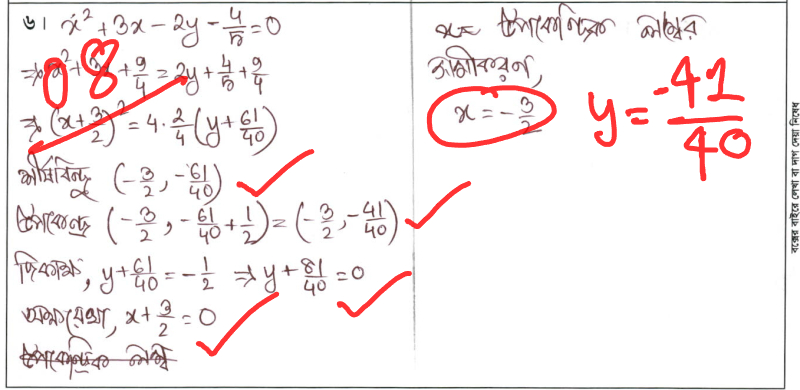 ৬। x² + 3x - 2y - 4/5 = 0
⇒ x² + 3x + 9/4 = 2y + 4/5 + 9/4
08
⇒ (x + 3/2)² = 4 · 2/4 (y + 61/40)
শীর্ষবিন্দু (-3/2, -61/40)
উপকেন্দ্র (-3/2, -61/40 + 1/2) = (-3/2, -41/40)
দিকাক্ষ, y + 61/40 = -1/2 ⇒ y + 81/40 = 0
অক্ষরেখা, x + 3/2 = 0
উপকেন্দ্রিক লম্ব
উপকেন্দ্রিক লম্বের
সমীকরণ,
x = -3/2
y = -41/40
বক্সের বাইরে লেখা বা দাগ দেয়া নিষেধ